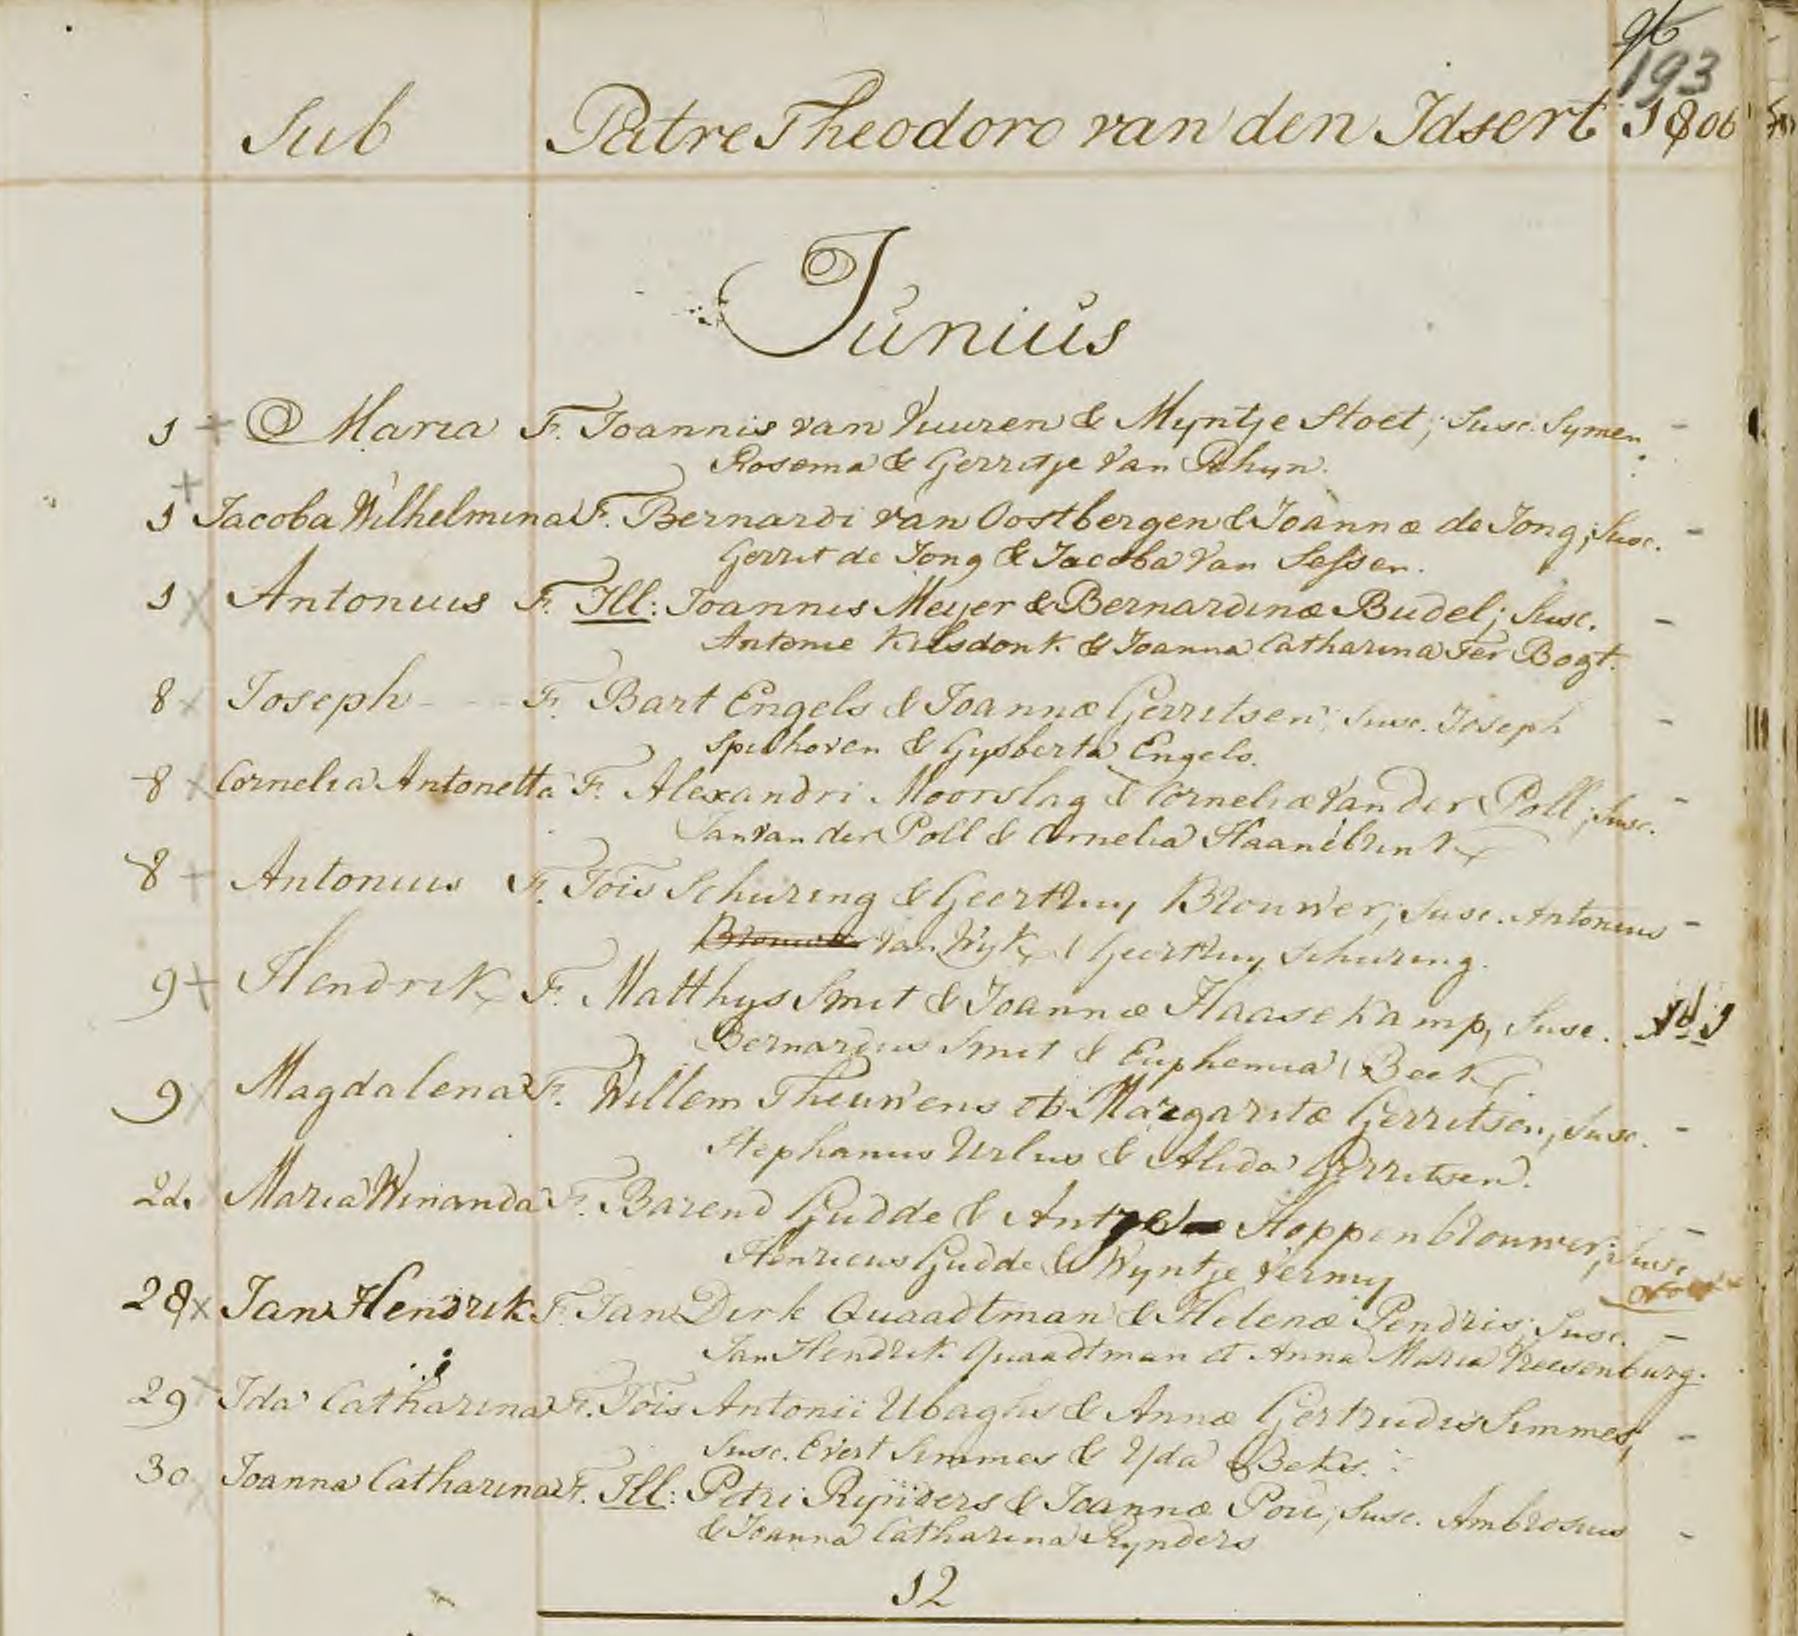 96
193
Sub Patre Theodoro van den Idsert 1806
Junius
1 Maria F. Joannis van Vuuren & Myntje Stoet; Susc. Symen
Rosema & Gerritje Van Rhyn.
1 Jacoba Wilhelmina F. Bernardi van Oostbergen & Joannæ de Jong; Susc.
Gerrit de Jong & Jacoba Van Sessen.
1 Antonius F. Ill: Joannis Meyer & Bernardinæ Budel; Susc.
Antonie Kilsdonk & Joanna Catharina Ter Bogt.
8 Joseph F. Bart Engels & Joannæ Gerritsen; Susc. Joseph
Spilhoven & Gysberta Engels.
8 Cornelia Antonetta F. Alexandri Moorslag & Corneliæ Van der Poll; Susc.
Jan van der Poll & Cornelia Haanebrink
8 Antonius F. Jois Schuring & Geertruy Brouwer; Susc. Antonius
Brouwer Van Wyk & Geertruy Schuring.
9 Hendrik F. Matthys Smit & Joannæ Haasekamp, Susc.
Bernardus Smit & Euphemia Beek
9 Magdalena F. Willem Theuwens et Margaritæ Gerritsen; Susc.
Stephanus Urlus & Alida Gerritsen.
Maria Winanda F. Barend Gudde & Antje Hoppenbrouwer; Susc.
Henricus Gudde & Wyntje Vermy
28 Jan Hendrik F. Jan Dirk Quaadtman & Helenæ Pendris; Susc.
Jan Hendrik Quaadtman et Anna Maria Vreesenburg.
29 Ida Catharina F. Jois Antonii Ubaghs & Annæ Gertrudis Simmes,
Susc. Evert Simmes & Yda Beks.
30 Joanna Catharina F. Ill: Petri Rynders & Joannæ Pou; Susc. Ambrosius
& Joanna Catharina Rynders
12